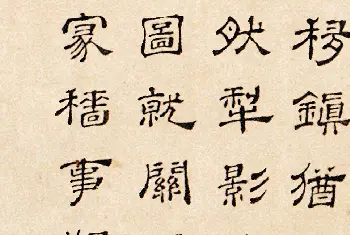 移鎮猶
然犁影
圖就關
家穡事